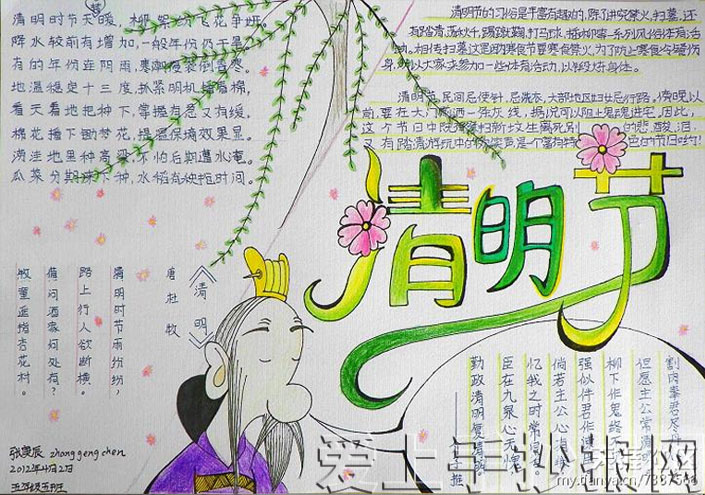 清明时节天暖，柳絮纷飞花争妍。
降水较前有增加，一般年份仍干旱。
有的年份连阴雨，寒潮侵袭倒春寒。
地温稳定十三度，抓紧明机播棉。
看天看地把种下，掌握有急又有缓。
棉花播下锄梦花，提温保墒效果显。
涝洼地里种高粱，不怕后期遭水淹。
瓜菜分期下种，水稻秧抢时间。
清明节的习俗是丰富有趣的，除了讲究禁火、扫墓，还
有踏青、荡秋千、蹴鞠、打马球、插柳等一系列风俗体育活
动。相传这是因寒食节要寒食禁火，为了防止寒食冷餐伤
身，所以大家来参加一些体育活动，以锻炼身体。
清明节，民间忌使针，忌洗衣，大部地区妇女忌行路。傍晚以
前，要在大门前洒一条灰线，据说可以阻止鬼魂进宅。因此，
这个节日中既有祭扫新坟生离死别的悲酸泪，
又有踏青游玩的欢笑声，是一个富有特色的节日
清明节
《清明》
唐 杜牧
清明时节雨纷纷，
路上行人欲断横。
借问酒家何处有？
牧童遥指杏花村。
割肉奉君尽丹
但愿主公常清
柳下作鬼终
强似伴君作谏
倘若主公心
忆我之时常自
臣在九泉心无愧
勤政清明复清
子推
张庚辰 zhang geng chen
2012年4月2日
五年级五班
爱上手抄报网
my.dunya.cn/7337568